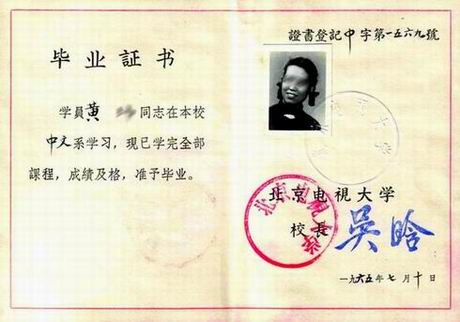 毕业証书
学員黄 同志在本校
中文系学习，現已学完全部
課程，成績及格，准予毕业。
證書登記中字第一五六九號
北京电視大学
校長 吳晗
一九六五年七月十日